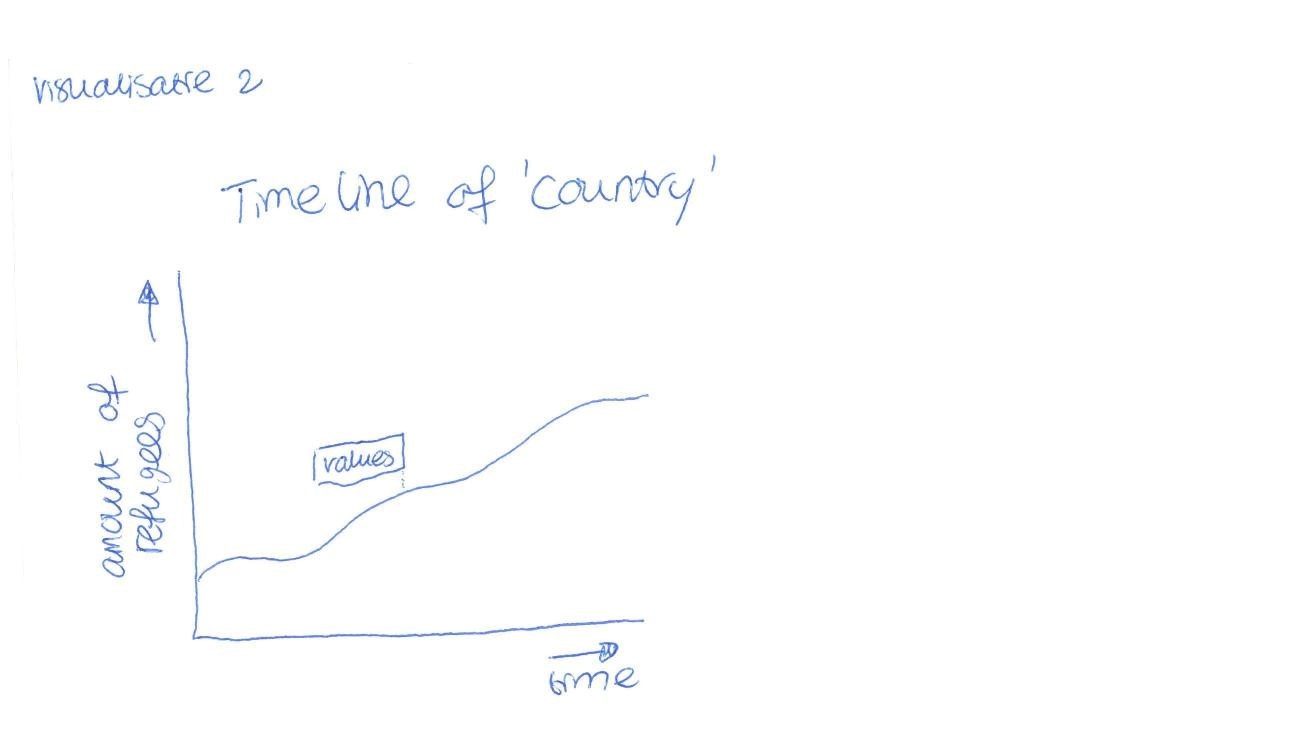 visualisatie 2
Timeline of 'country'
amount of
refugees
values
time